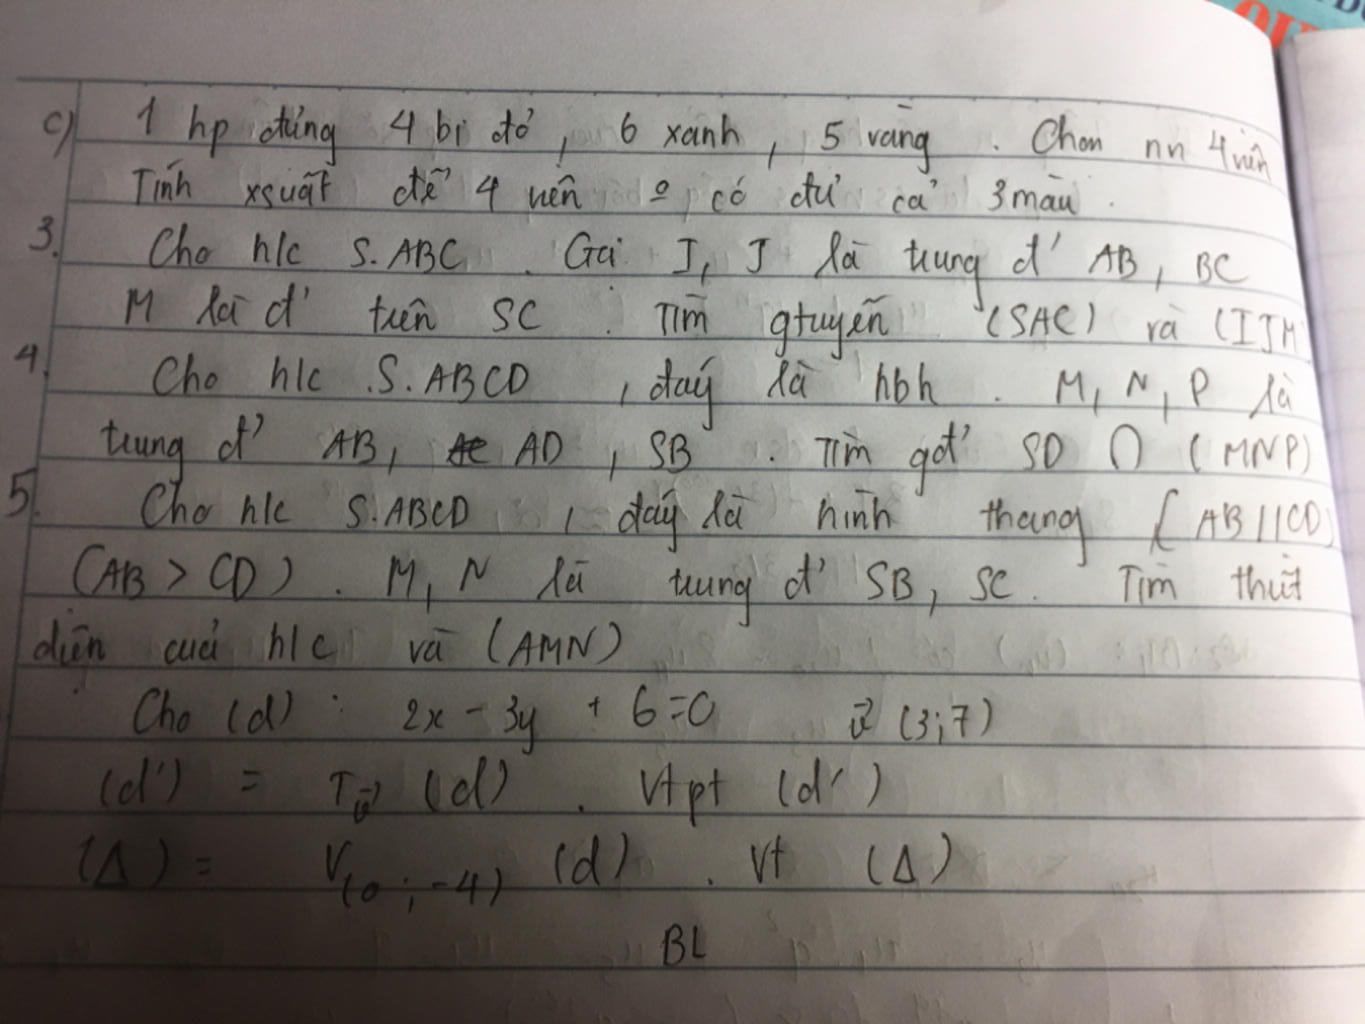 c) 1 hp đứng 4 bi đỏ, 6 xanh, 5 vàng. Chọn nn 4 viên
Tính xsuất để 4 viên có đủ cả 3 màu.
3. Cho h/c S.ABC. Gọi I, J là trung đ' AB, BC
M là đ' trên SC. Tìm gtuyến (SAC) và (IJM)
4. Cho h/c S.ABCD, đáy là hbh. M, N, P là
trung đ' AB, AD, SB. Tìm gđ' SD ∩ (MNP)
5. Cho h/c S.ABCD, đáy là hình thang (AB//CD)
(AB > CD). M, N là trung đ' SB, SC. Tìm thiết
diện của h/c và (AMN)
Cho (d): 2x - 3y + 6 = 0 v⃗ (3;7)
(d') = Tv⃗ (d). Vtpt (d')
(Δ) = V(0;-4) (d). Vt (Δ)
BL